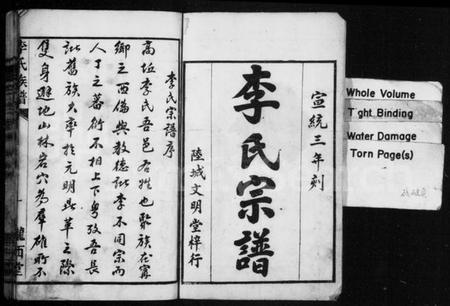 宣統三年刻
李氏宗譜
陸城文明堂梓行
李氏宗譜序
高坵李氏吾邑右姓也聚族在富
鄉之西偏與教德訛李不同宗而
人丁之蕃衍不相上下粤攷吾長
訛舊族大率於元明興革之際
隻身避地山林岩穴為羣雄所不
李氏族譜
一
Whole Volume
Tight Binding
Water Damage
Torn Page(s)